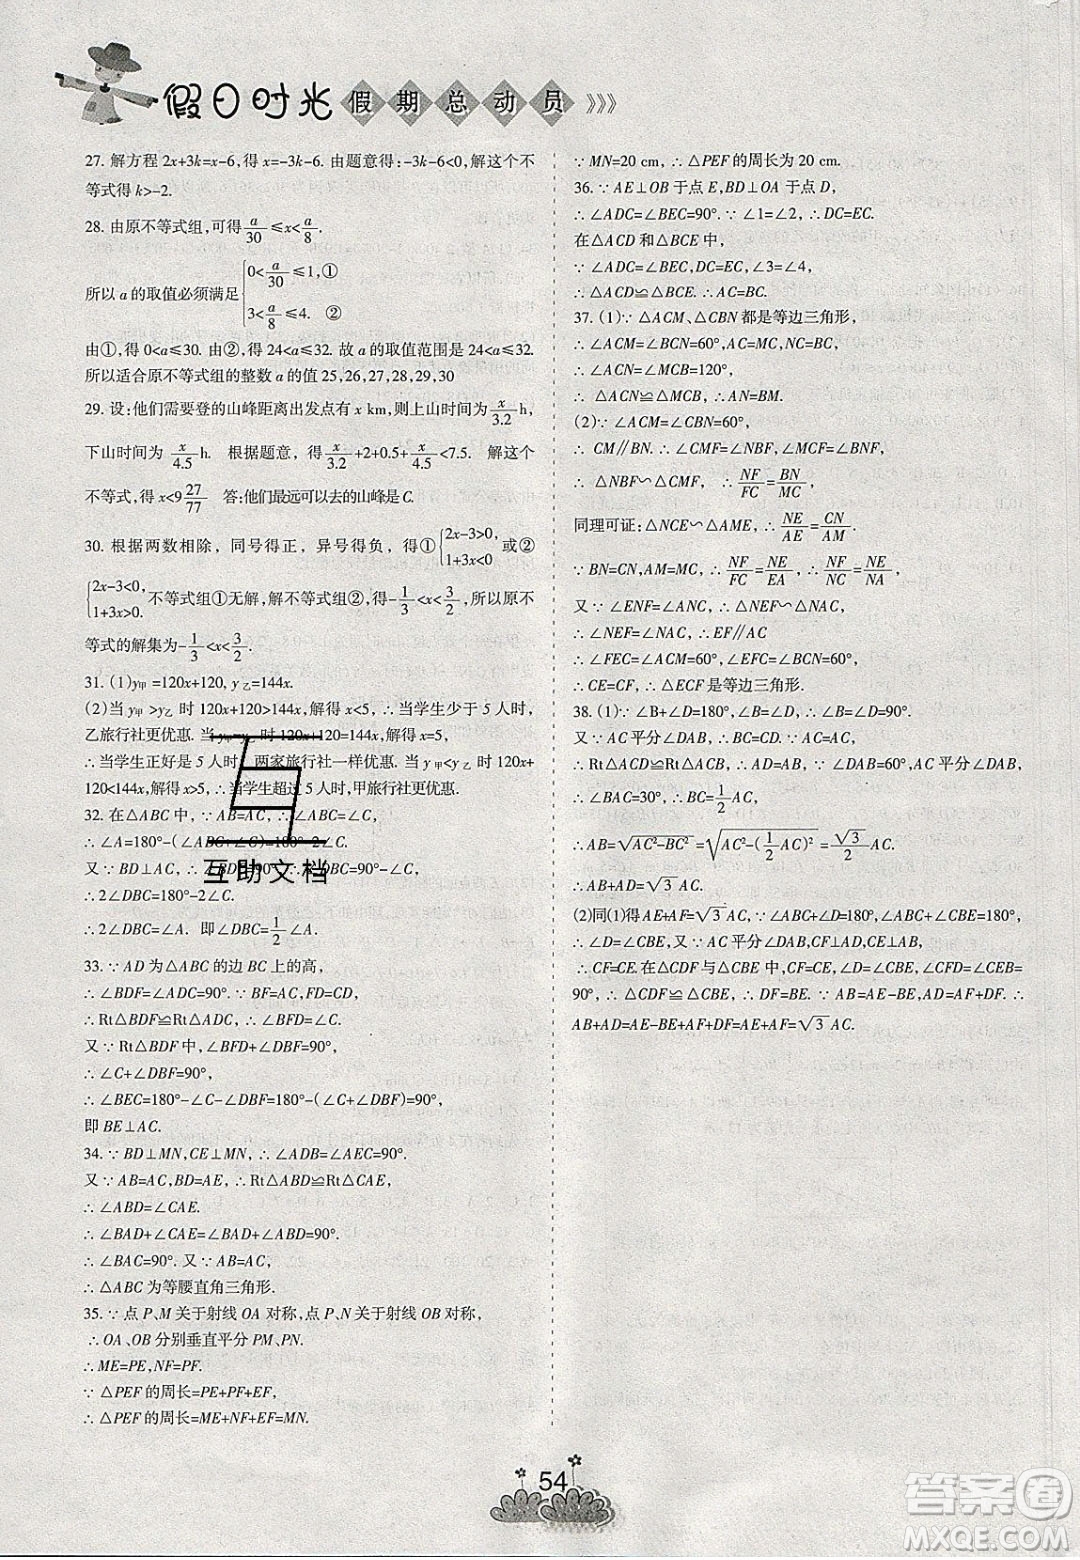 假日时光 假期总动员
27. 解方程 2x+3k=x-6,得 x=-3k-6. 由题意得:-3k-6<0,解这个不
等式得 k>-2.
28. 由原不等式组,可得 a/30 ≤x< a/8.
所以 a 的取值必须满足 {0< a/30 ≤1,①
3< a/8 ≤4. ②
由①,得 0<a≤30. 由②,得 24<a≤32. 故 a 的取值范围是 24<a≤32.
所以适合原不等式组的整数 a 的值 25,26,27,28,29,30
29. 设:他们需要登的山峰距离出发点有 x km,则上山时间为 x/3.2 h,
下山时间为 x/4.5 h. 根据题意,得 x/3.2 +2+0.5+ x/4.5 <7.5. 解这个
不等式,得 x<9 27/77 答:他们最远可以去的山峰是C.
30. 根据两数相除，同号得正，异号得负，得① {2x-3>0, 1+3x<0 或②
{2x-3<0, 1+3x>0. 不等式组①无解,解不等式组②,得- 1/3 <x< 3/2 ,所以原不
等式的解集为- 1/3 <x< 3/2 .
31. (1)y甲 =120x+120, y乙=144x.
(2)当 y甲 >y乙 时 120x+120>144x,解得 x<5, ∴当学生少于 5 人时,
乙旅行社更优惠. 当 y甲=y乙 时 120x+120=144x,解得 x=5,
∴当学生正好是 5 人时, 两家旅行社一样优惠. 当 y甲<y乙 时,120x+
120<144x,解得x>5, ∴当学生超过 5 人时,甲旅行社更优惠.
32. 在△ABC 中, ∵ AB=AC, ∴ ∠ABC=∠C,
∴ ∠A=180°-(∠ABC+∠C)=180°-2∠C.
又 ∵ BD⊥AC, ∴ ∠BDC=90°, ∴ ∠DBC=90°-∠C,
∴ 2∠DBC=180°-2∠C.
∴ 2∠DBC=∠A. 即∠DBC= 1/2 ∠A.
33. ∵ AD 为△ABC 的边 BC 上的高,
∴ ∠BDF=∠ADC=90°. ∵ BF=AC,FD=CD,
∴ Rt△BDF≌Rt△ADC, ∴ ∠BFD=∠C.
又 ∵ Rt△BDF 中, ∠BFD+∠DBF=90°,
∴ ∠C+∠DBF=90°,
∴ ∠BEC=180°-∠C-∠DBF=180°-90°=90°,
即 BE⊥AC.
34. ∵ BD⊥MN,CE⊥MN, ∴ ∠ADB=∠AEC=90°.
又 ∵ AB=AC,BD=AE, ∴ Rt△ABD≌Rt△CAE,
∴ ∠ABD=∠CAE.
∴ ∠BAD+∠CAE=∠BAD+∠ABD=90°.
∴ ∠BAC=90°. 又 ∵ AB=AC,
∴ △ABC 为等腰直角三角形.
35. ∵ 点 P、M 关于射线 OA 对称,点 P、N 关于射线 OB 对称,
∴ OA、OB 分别垂直平分 PM、PN.
∴ ME=PE,NF=PF.
∵ △PEF 的周长=PE+PF+EF,
∴ △PEF 的周长=ME+NF+EF=MN.
∵ MN=20 cm, ∴ △PEF 的周长为 20 cm.
36. ∵ AE⊥OB 于点 E,BD⊥OA 于点 D,
∴ ∠ADC=∠BEC=90°. ∵ ∠1=∠2, ∴ DC=EC.
在△ACD 和△BCE 中,
∵ ∠ADC=∠BEC,DC=EC,∠3=∠4,
∴ △ACD≌△BCE, ∴ AC=BC.
37. (1)∵ △ACM、△CBN 都是等边三角形,
∴ ∠ACM=∠BCN=60°,AC=MC,BC=NC.
∴ ∠ACN=∠MCB=120°,
∴ △ACN≌△MCB, ∴ AN=BM.
(2)∵ ∠ACM=∠CBN=60°,
∴ CM∥BN. ∴ ∠CMF=∠NBF,∠MCF=∠BNF,
∴ △NBF∽△CMF, ∴ NF/FC = BN/MC ,
同理可证: △NCE∽△AME, ∴ NE/AE = CN/AM .
∵ BN=CN,AM=MC, ∴ NF/FC = NE/EA , ∴ NF/NC = NE/NA ,
又 ∵ ∠ENF=∠ANC, ∴ △NEF∽△NAC,
∴ ∠NEF=∠NAC, ∴ EF∥AC
∴ ∠FEC=∠ACM=60°, ∠EFC=∠BCN=60°,
∴ CE=CF, ∴ △ECF 是等边三角形.
38. (1)∵ ∠B+∠D=180°,∠B=∠D, ∴ ∠B=∠D=90°.
又 ∵ AC 平分∠DAB, ∴ CD=CB,AC=AC,
∴ Rt△ACD≌Rt△ACB. ∵ ∠DAC=60°, AC 平分∠DAB,
∴ ∠BAC=30°. ∴ BC= 1/2 AC,
∴ AB=√(AC²-BC²) =√(AC²-( 1/2 AC)²) = √3/2 AC.
∴ AB+AD=√3 AC.
(2)同(1)得AE+AF=√3 AC, ∵ ∠ADC+∠CDF=180°,∠ABC+∠CBE=180°,
∴ ∠D=∠CBE, 又 ∵ AC 平分∠DAB,CF⊥AD,CE⊥AB,
∴ CF=CE. 在△CDF 与△CBE 中,∠CDF=∠CBE,CF=CE,∠F=∠CEB=
90°, ∴ △CDF≌△CBE, ∴ DF=BE. ∵ AB=AE-BE,AD=AF+DF. ∴
AB+AD=AE-BE+AF+DF=AE+AF=√3 AC.
互助文档
54
答案圈
MXQE.COM